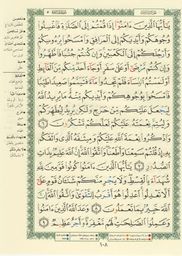 يَٰٓأَيُّهَا ٱلَّذِينَ ءَامَنُوٓا۟ إِذَا قُمْتُمْ إِلَى ٱلصَّلَوٰةِ فَٱغْسِلُوا۟
وُجُوهَكُمْ وَأَيْدِيَكُمْ إِلَى ٱلْمَرَافِقِ وَٱمْسَحُوا۟ بِرُءُوسِكُمْ
وَأَرْجُلَكُمْ إِلَى ٱلْكَعْبَيْنِ وَإِن كُنتُمْ جُنُبًا فَٱطَّهَّرُوا۟
وَإِن كُنتُم مَّرْضَىٰٓ أَوْ عَلَىٰ سَفَرٍ أَوْ جَآءَ أَحَدٌ مِّنكُم مِّنَ ٱلْغَآئِطِ
أَوْ لَٰمَسْتُمُ ٱلنِّسَآءَ فَلَمْ تَجِدُوا۟ مَآءً فَتَيَمَّمُوا۟ صَعِيدًا طَيِّبًا
فَٱمْسَحُوا۟ بِوُجُوهِكُمْ وَأَيْدِيكُم مِّنْهُ مَا يُرِيدُ ٱللَّهُ
لِيَجْعَلَ عَلَيْكُم مِّنْ حَرَجٍ وَلَٰكِن يُرِيدُ لِيُطَهِّرَكُمْ
وَلِيُتِمَّ نِعْمَتَهُۥ عَلَيْكُمْ لَعَلَّكُمْ تَشْكُرُونَ ٦
وَٱذْكُرُوا۟ نِعْمَةَ ٱللَّهِ عَلَيْكُمْ وَمِيثَٰقَهُ ٱلَّذِى وَاثَقَكُم
بِهِۦٓ إِذْ قُلْتُمْ سَمِعْنَا وَأَطَعْنَا وَٱتَّقُوا۟ ٱللَّهَ إِنَّ ٱللَّهَ عَلِيمٌۢ بِذَاتِ
ٱلصُّدُورِ ٧ يَٰٓأَيُّهَا ٱلَّذِينَ ءَامَنُوا۟ كُونُوا۟ قَوَّٰمِينَ لِلَّهِ
شُهَدَآءَ بِٱلْقِسْطِ وَلَا يَجْرِمَنَّكُمْ شَنَـَٔانُ قَوْمٍ عَلَىٰٓ
أَلَّا تَعْدِلُوا۟ ٱعْدِلُوا۟ هُوَ أَقْرَبُ لِلتَّقْوَىٰ وَٱتَّقُوا۟ ٱللَّهَ إِنَّ
ٱللَّهَ خَبِيرٌۢ بِمَا تَعْمَلُونَ ٨ وَعَدَ ٱللَّهُ ٱلَّذِينَ ءَامَنُوا۟
وَعَمِلُوا۟ ٱلصَّٰلِحَٰتِ لَهُم مَّغْفِرَةٌ وَأَجْرٌ عَظِيمٌ ٩
١٠٨